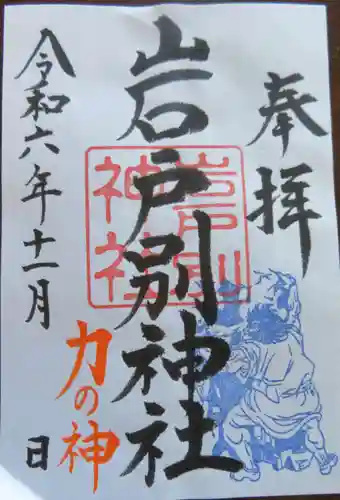 奉拝
岩戸別神社
岩戸別
神社
力の神
令和六年十一月
日